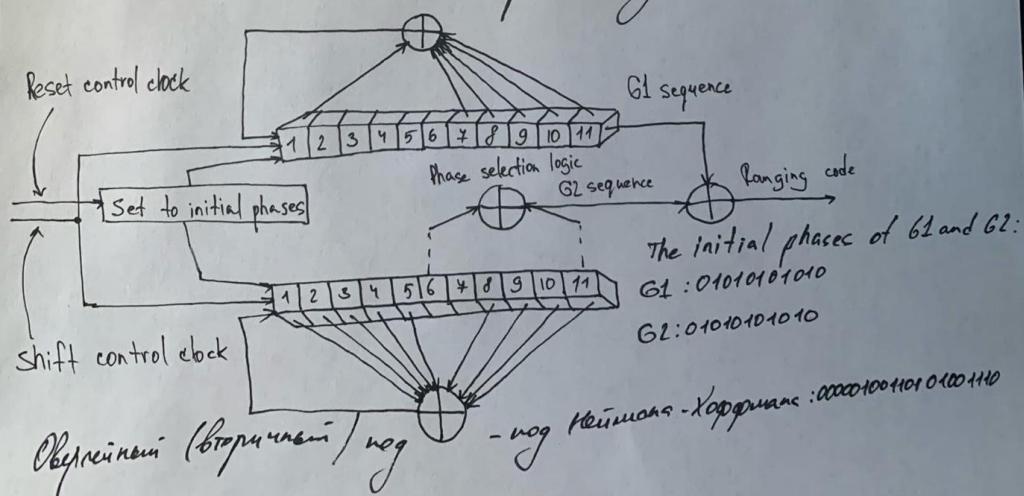 Reset control clock
G1 sequence
1 2 3 4 5 6 7 8 9 10 11
Phase selection logic
G2 sequence
Ranging code
Set to initial phases
The initial phases of G1 and G2:
G1 : 01010101010
1 2 3 4 5 6 7 8 9 10 11
G2: 01010101010
Shift control clock
Оверлейный (вторичный) код - код Неймана - Хоффмана : 00000100110101001110